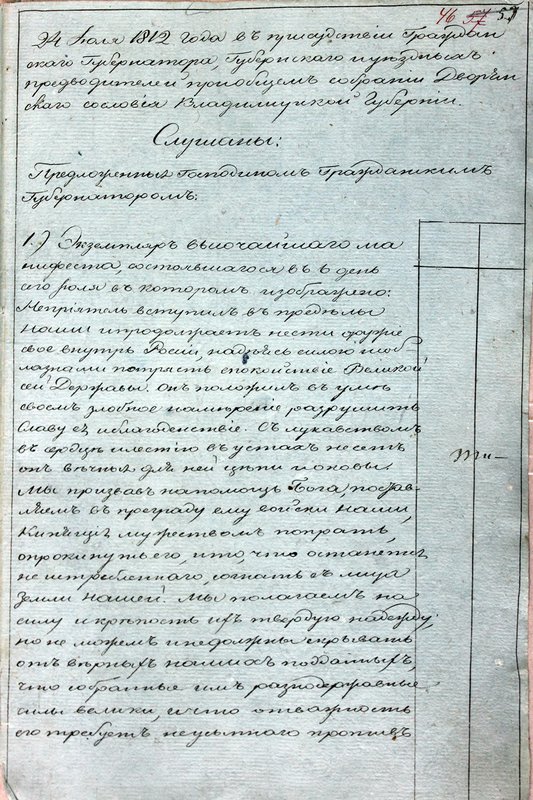 46 57
24 Іюля 1812 года въ присудствіи Граждан
скаго Губернатора, Губернскаго и уѣздныхъ
предводителей при общемъ собраніи Дворян
скаго сословія Владимирской Губерніи.
Слушаны:
Предложенныя Господиномъ Гражданскимъ
Губернаторомъ:
1.) Экземпляръ высочайшаго ма
нифеста, состоявшагося въ 6 день
сего Іюля въ которомъ изображено:
Непріятель вступилъ въ предѣлы
наши и продолжаетъ нести оружіе
свое внутрь Росіи, надѣясь силою и соб-
лазнами потрясть спокойствіе Великой
сей Державы. Онъ положилъ въ умѣ
своемъ злобное намѣреніе разрушить
Славу ея и благоденствіе. Съ лукавствомъ
въ сердцѣ и лестію въ устахъ несетъ
онъ вѣчныя для ней цѣпи и оковы.
Мы призвавъ на помощь Бога, постав-
ляемъ въ преграду ему войски наши,
Кипящія мужествомъ попрать,
опрокинуть его, и то, что останется
не истребленнаго, согнать съ лица
Земли нашей. Мы полагаемъ на
силу и крѣпость ихъ твердую надежду,
но не можемъ и недолжны скрывать
отъ вѣрныхъ нашихъ подданныхъ,
что собранные имъ разнодержавные
силы велики, и что отважность
его требуетъ неусыпнаго противъ